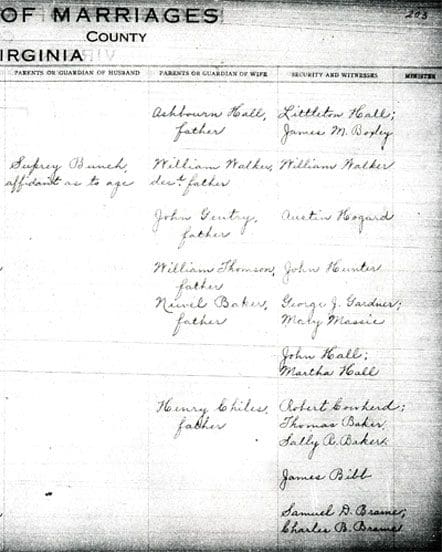 OF MARRIAGES
203
COUNTY
VIRGINIA
PARENTS OR GUARDIAN OF HUSBAND PARENTS OR GUARDIAN OF WIFE SECURITY AND WITNESSES MINISTER
Ashbourn Hall, Littleton Hall;
father James M. Boxley
Suprey Bunch, William Walker, William Walker
affidant as to age des't father
John Gentry, Austin Hogard
father
William Thomson, John Hunter
father
Nuvel Baker, George J. Gardner;
father Mary Massie
John Hall;
Martha Hall
Henry Chiles, Robert Cowherd;
father Thomas Baker,
Sally A. Baker
James Bibb
Samuel D. Brame;
Charles B. Brame